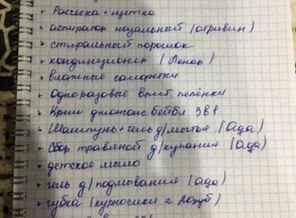 Расческа + щетка
аспиратор назальный (отривин)
стиральный порошок
кондиционер (Ленор)
Влажные салфетки
Одноразовые впит. пелёнки
Крем джонсонс бейби 3в1
Шампунь + гель д/мытья (Ода)
Сбор травяной д/купания (Ода)
детское мыло
гель д/подмывания (Ода)
губка (